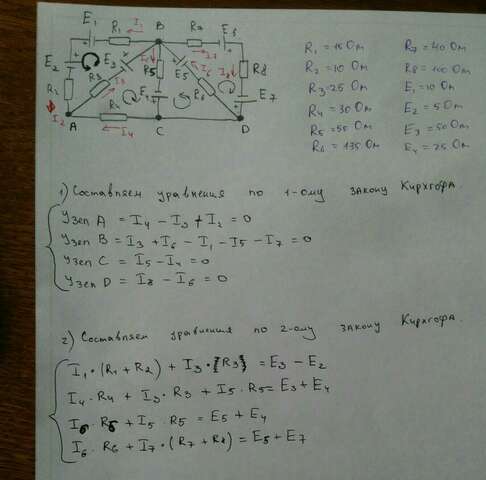 E₁ R₁ I₁ B R₇ E₆
E₂ E₃ I₇ R₈
R₅ E₅ I₆ I₈
R₂ R₃ I₃ E₄ R₆ E₇
I₂ A R₄ I₄ C D
R₁ = 15 Ом R₇ = 40 Ом
R₂ = 10 Ом R8 = 100 Ом
R3 = 25 Ом E₁ = 10 Ом
R₄ = 30 Ом E₂ = 5 Ом
R₅ = 50 Ом E₃ = 50 Ом
R₆ = 135 Ом E₄ = 25 Ом
1) Составляем уравнения по 1-ому закону Кирхгофа.
Узел A = I₄ - I₃ + I₂ = 0
Узел B = I₃ + I₆ - I₁ - I5 - I₇ = 0
Узел C = I₅ - I₄ = 0
Узел D = I8 - I₆ = 0
2) Составляем уравнения по 2-ому закону Кирхгофа.
I₁ · (R₁ + R₂) + I₃ · (R3) = E₃ - E₂
I₄ · R₄ + I₃ · R₃ + I₅ · R₅ = E₃ + E₄
I₆ · R₆ + I₅ · R₅ = E₅ + E₄
I₆ · R₆ + I₇ · (R₇ + R8) = E₅ + E₇